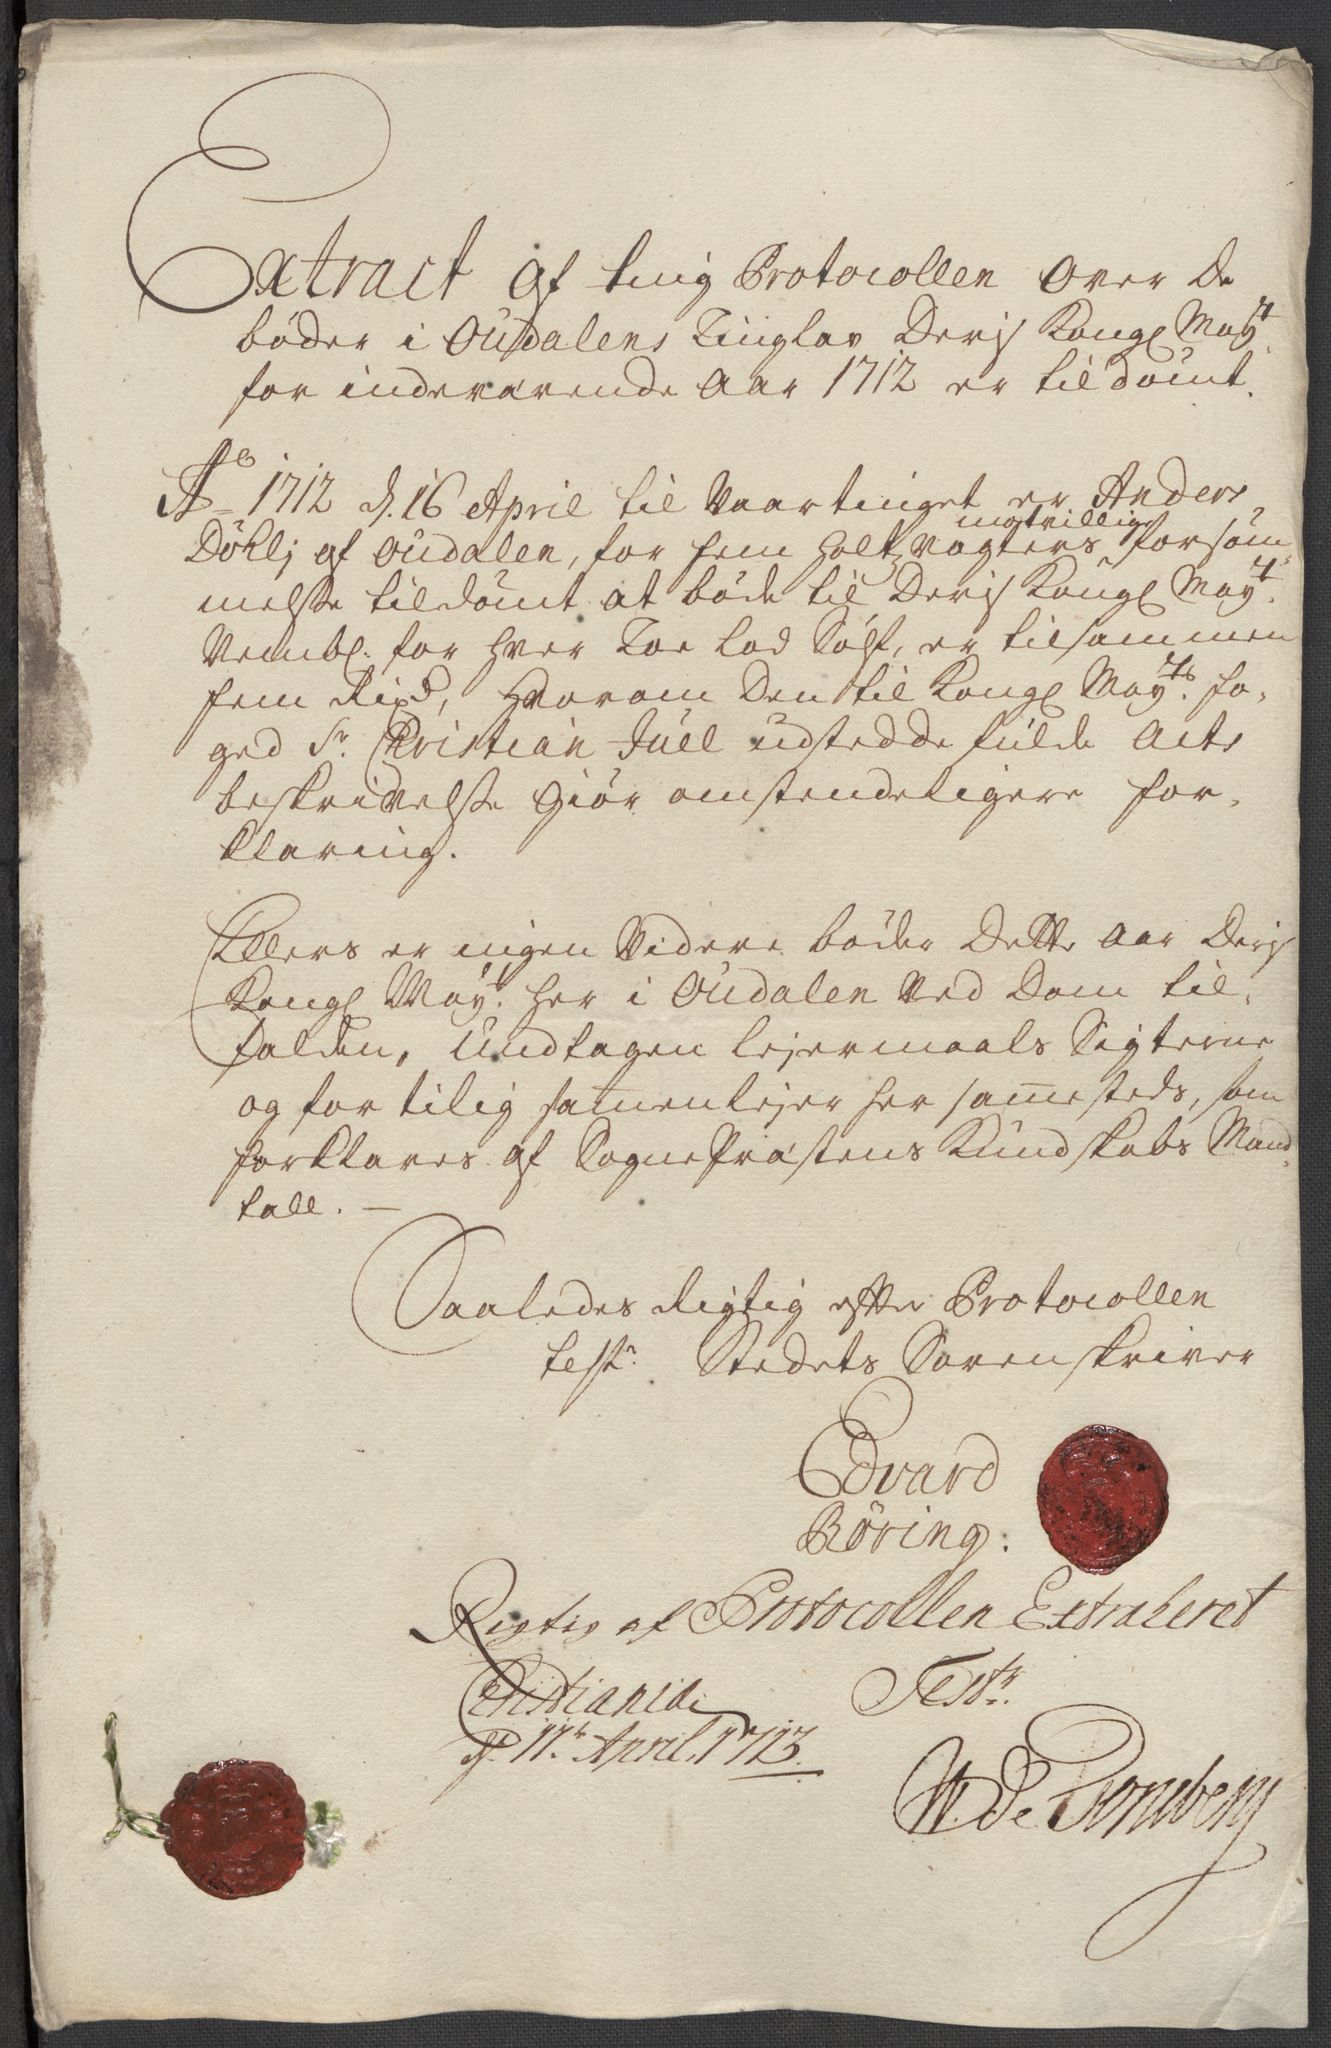 Extract af ting Protocollen over De
bøder i Oudalens Tinglav Deris Kongl May.t
for indeværende Aar 1712 er tildømt.
A.o 1712 d. 16 April til Vaartinget er Anders
Døhli af Oudalen, for fem holt Vagters modtvillig forsøm-
melse tildømt at bøde til Deris Kongl May.t
for hver Toe Lod Sølf, er tilsammen
fem Rixd, hvorom Den til Kongl May.ts fo-
ged S.r Christian Juell udstedde fulde Acts
beskrivelse giør omstendeligere for-
klaring.
Ellers er ingen Videre bøder Dette Aar Deris
Kongl May.t her i Oudalen Ved Dom til-
falden, Undtagen lejermaals Sigterne
og for tilig samenlejer her sammesteds, som
forklares af SognePræstens Kundskabs Mand-
tall. —
Saaledes Rigtig efter Protocollen
test.r Stedets Sorenskriver
Edvard
Röring.
Rigtig af Protocollen Extraheret
Christiania Test.r
d. 11.t April. 1713.
W. De